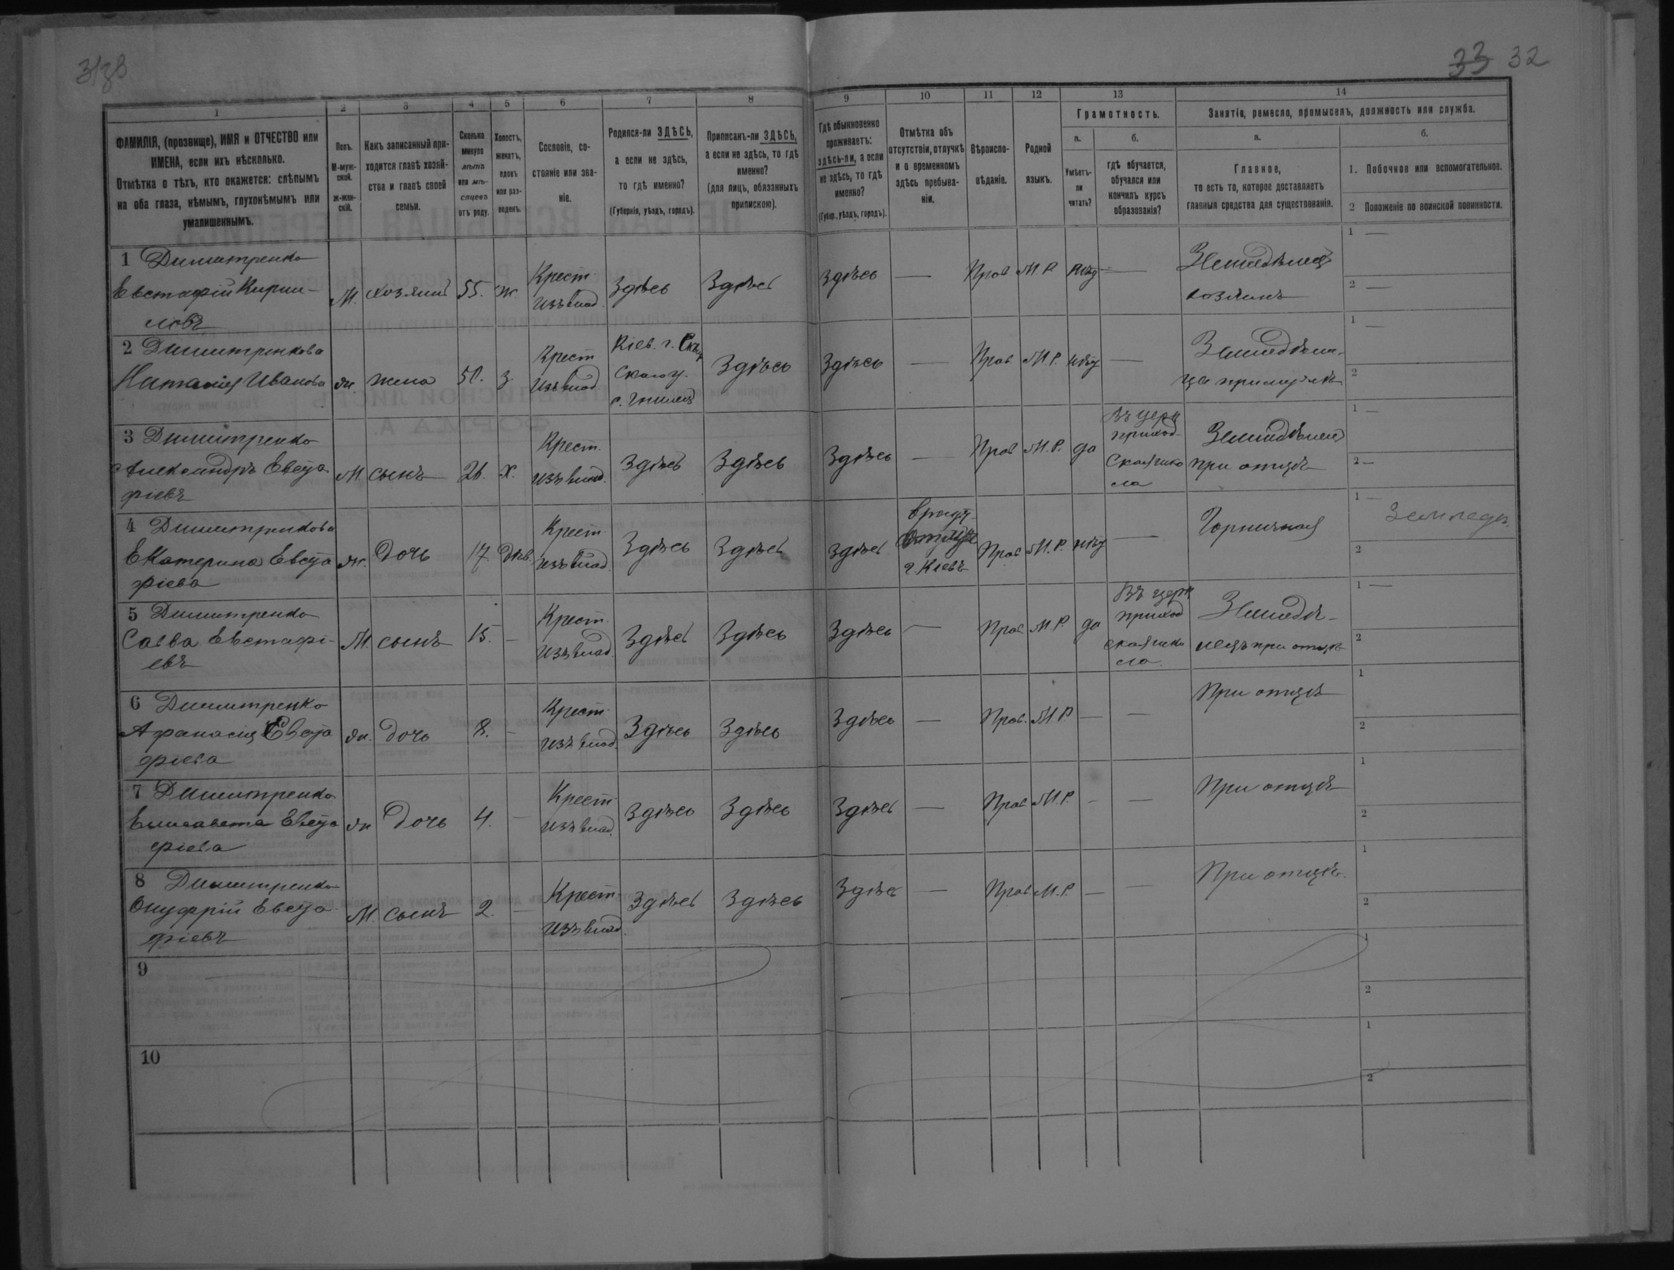 33 32
1
2
3
4
5
6
7
8
9
10
11
12
13
14
ФАМИЛІЯ, (прозвище), ИМЯ и ОТЧЕСТВО или
ИМЕНА, если ихъ нѣсколько.
Отмѣтка о тѣхъ, кто окажется: слѣпымъ
на оба глаза, нѣмымъ, глухонѣмымъ или
умалишеннымъ.
Полъ.
М-муж-
ской.
ж-жен-
скій.
Какъ записанный при-
ходится главѣ хозяй-
ства и главѣ своей
семьи.
Сколько
минуло
лѣтъ
или мѣ-
сяцевъ
отъ роду.
Холостъ,
женатъ,
вдовъ
или раз-
веденъ.
Сословіе, со-
стояніе или зва-
ніе.
Родился-ли ЗДѢСЬ,
а если не здѣсь,
то гдѣ именно?
(Губернія, уѣздъ, городъ).
Приписанъ-ли ЗДѢСЬ,
а если не здѣсь, то гдѣ
именно?
(для лицъ, обязанныхъ
припискою).
Гдѣ обыкновенно
проживаетъ:
здѣсь-ли, а если
не здѣсь, то гдѣ
именно?
(Губер., уѣздъ, городъ).
Отмѣтка объ
отсутствіи, отлучкѣ
и о временномъ
здѣсь пребыва-
ніи.
Вѣроиспо-
вѣданіе.
Родной
языкъ.
Грамотность.
а.
Умѣетъ-
ли
читать?
б.
гдѣ обучается,
обучался или
кончилъ курсъ
образованія?
Занятія, ремесло, промыселъ, должность или служба.
а.
Главное,
то есть то, которое доставляетъ
главныя средства для существованія.
б.
1. Побочное или вспомогательное.
2 Положеніе по воинской повинности.
1 Димитренко
Евстафій Кирил-
ловъ
М. хозяинъ 55. ж Крест
изъ влад. Здѣсь Здѣсь Здѣсь — Прав М.Р. нѣтъ — Земледѣлецъ
хозяинъ
1 —
2 —
2 Димитренкова
Наталія Иванова
жн жена 50. з Крест
изъ влад. Кіев. г. Сквир
Здѣсь Здѣсь — Прав М.Р. нѣтъ — Земледѣли-
ца при мужѣ
1 —
2
3 Димитренко
Александръ Евста
фіевъ
М сынъ 26. х. Крест.
изъ влад. Здѣсь Здѣсь Здѣсь — Прав М.Р. да Въ церк
приход
Земледѣлец
при отцѣ
1 —
2 —
4 Димитренкова
Екатерина Евста
фіева
жн. Дочь 17. Дѣв. Крест.
изъ влад. Здѣсь Здѣсь Здѣсь
г. Кіевъ Прав М.Р. нѣтъ — Горничная
1 — Землед
2
5 Димитренко
Савва Евстафі-
евъ
М. сынъ 15. — Крест.
изъ влад Здѣсь Здѣсь Здѣсь — Прав М.Р да Въ церк
приход
Земледѣ-
лецъ при отцѣ
1 —
2
6 Димитренко
Афанасія Евста
фіева
жн. Дочь 8. — Крест.
изъ влад. Здѣсь Здѣсь Здѣсь — Прав. М.Р — — При отцѣ
1
2
7 Димитренко
Елисавета Евста
фіева
жн Дочь 4. — Крест
изъ влад. Здѣсь Здѣсь Здѣсь — Прав М.Р. — — При отцѣ
1
2
8 Димитренко
Онуфрій Евста
фіевъ
М сынъ 2. — Крест
изъ влад. Здѣсь Здѣсь Здѣсь — Прав М.Р. — — При отцѣ.
1
2
9
1
2
10
1
2